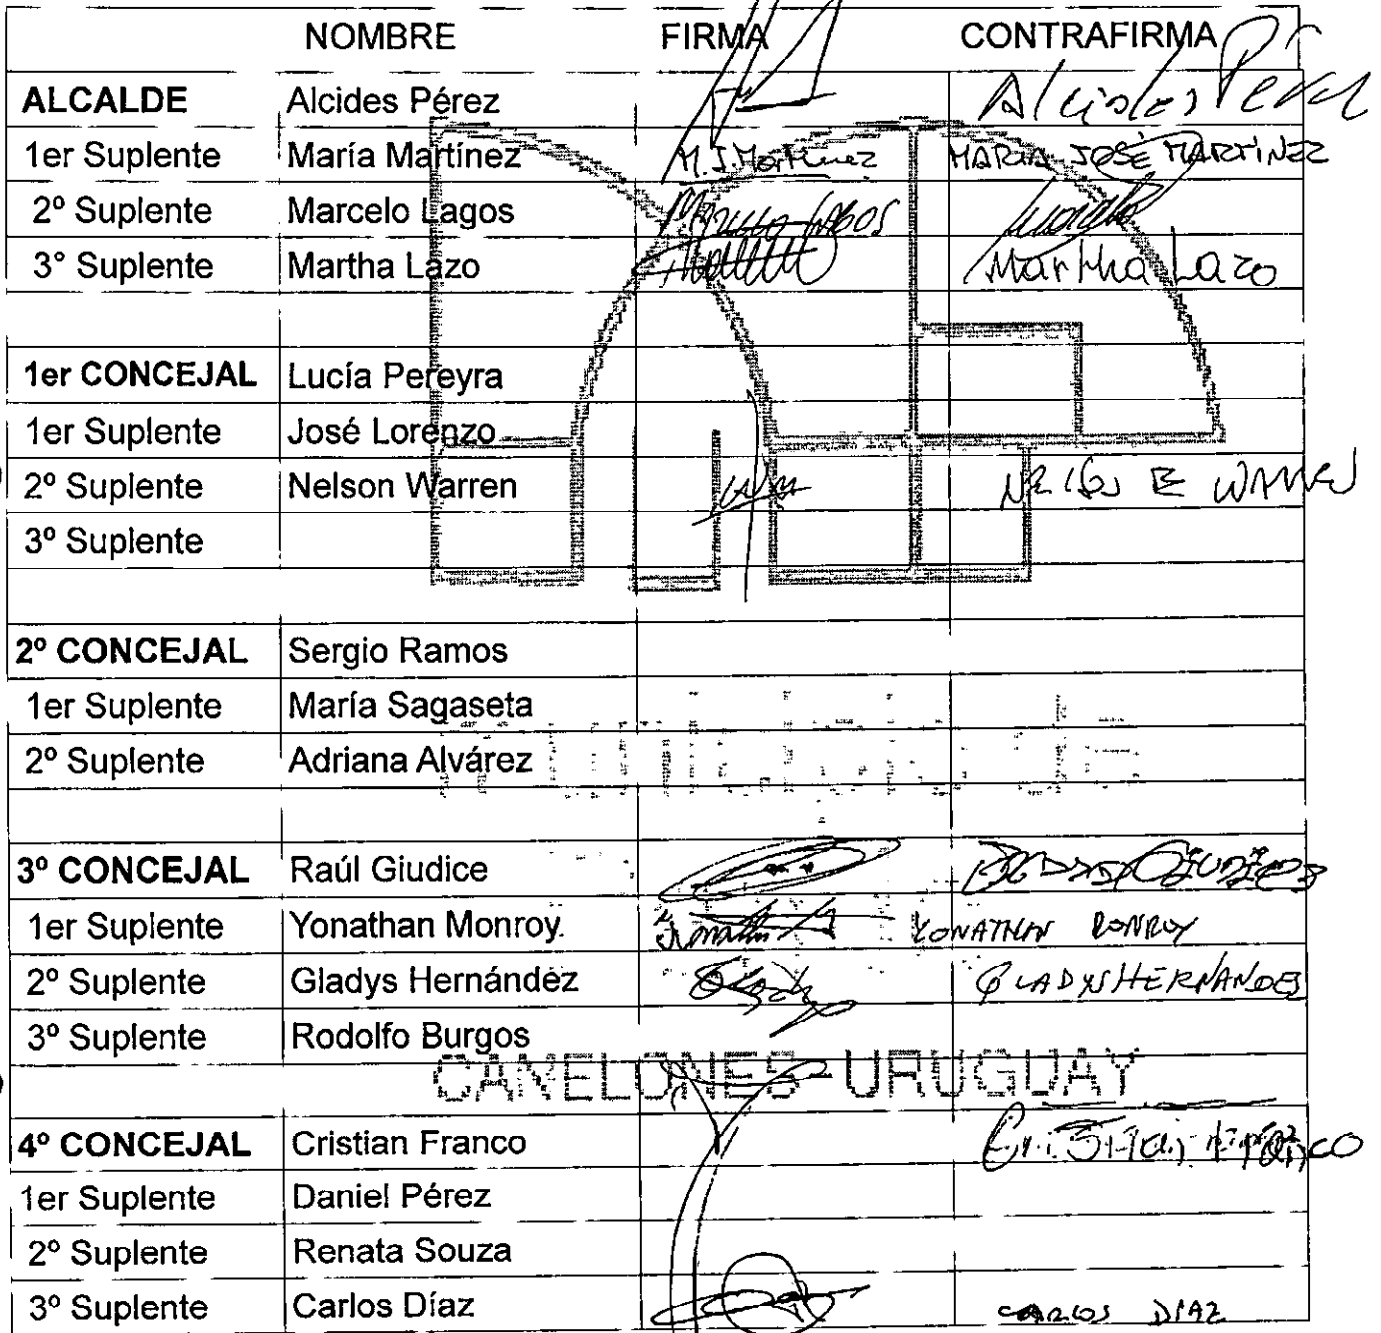 NOMBRE FIRMA CONTRAFIRMA
ALCALDE Alcides Pérez Alcides Pérez
1er Suplente María Martínez M.J.Martínez MARIA JOSÉ MARTINEZ
2º Suplente Marcelo Lagos Lagos
3° Suplente Martha Lazo Martha Lazo
1er CONCEJAL Lucía Pereyra
1er Suplente José Lorenzo
2º Suplente Nelson Warren NELSON E WARREN
3º Suplente
2º CONCEJAL Sergio Ramos
1er Suplente María Sagaseta
2º Suplente Adriana Alvárez
3º CONCEJAL Raúl Giudice
1er Suplente Yonathan Monroy. YONATHAN MONROY
2º Suplente Gladys Hernández GLADYS HERNANDES
3º Suplente Rodolfo Burgos
CANELONES-URUGUAY
4º CONCEJAL Cristian Franco Cristian Franco
1er Suplente Daniel Pérez
2º Suplente Renata Souza
3º Suplente Carlos Díaz CARLOS DIAZ